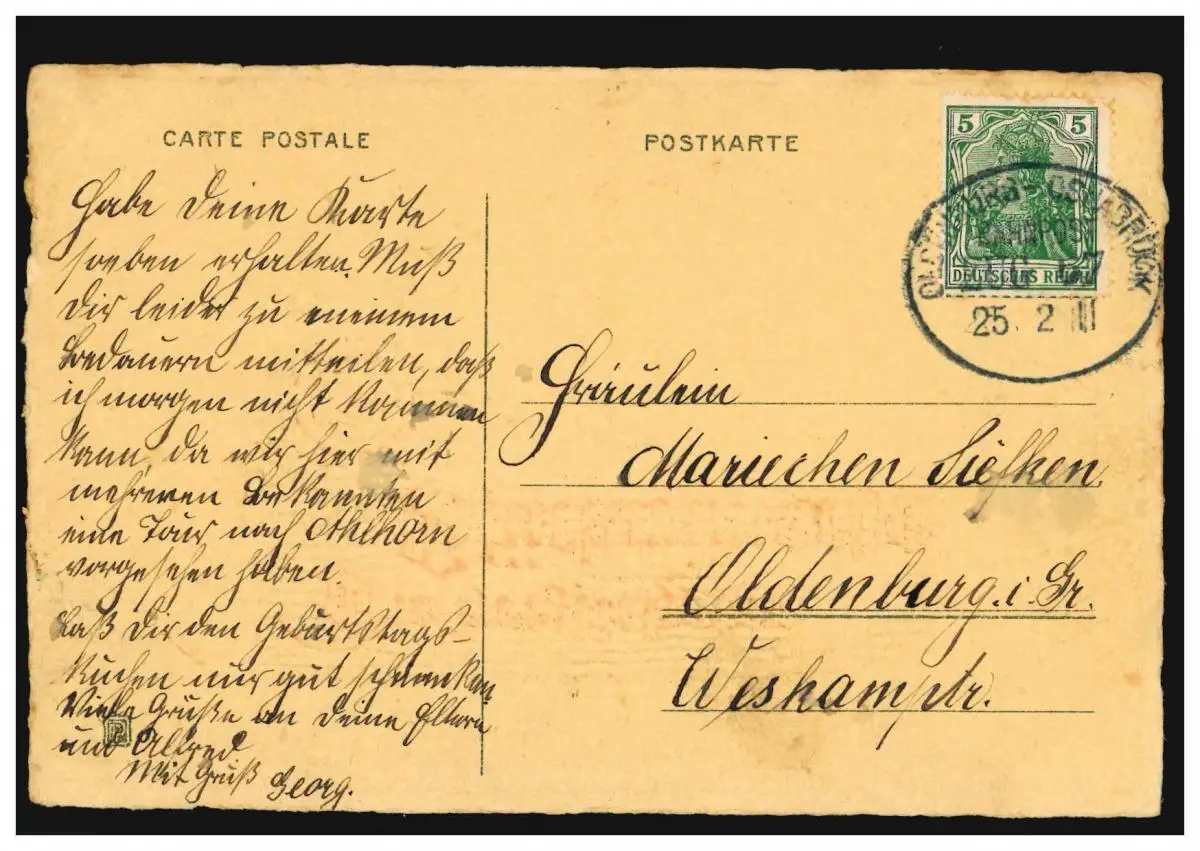 CARTE POSTALE
POSTKARTE
5 5
DEUTSCHES REICH
OLDENBURG - OSNABRÜCK
BAHNPOST
ZUG
25. 2 11
Habe Deine Karte
soeben erhalten. Muß
Dir leider zu meinem
Bedauern mitteilen, daß
ich morgen nicht kommen
kann, da wir hier mit
mehreren Bekannten
eine Tour nach Ahlhorn
vorgesehen haben.
Laß Dir den Geburtstags-
kuchen nur gut schmecken.
Viele Grüße an Deine Eltern
und Alfred
Mit Gruß Georg.
Fräulein
Mariechen Siefken,
Oldenburg. i. Gr.
Weskampstr.